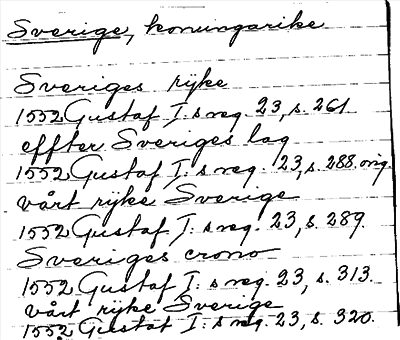 Sverige, konungarike
Sveriges rijke
1552 Gustaf I: s reg. 23, s. 261
effter Sveriges lag
1552 Gustaf I: s reg. 23, s. 288 orig.
vårt rijke Sverige
1552 Gustaf I: s reg. 23, s. 289.
Sveriges crono
1552 Gustaf I: s reg. 23, s. 313.
vårt rijke Sverige
1552 Gustaf I: s reg. 23, s. 320.